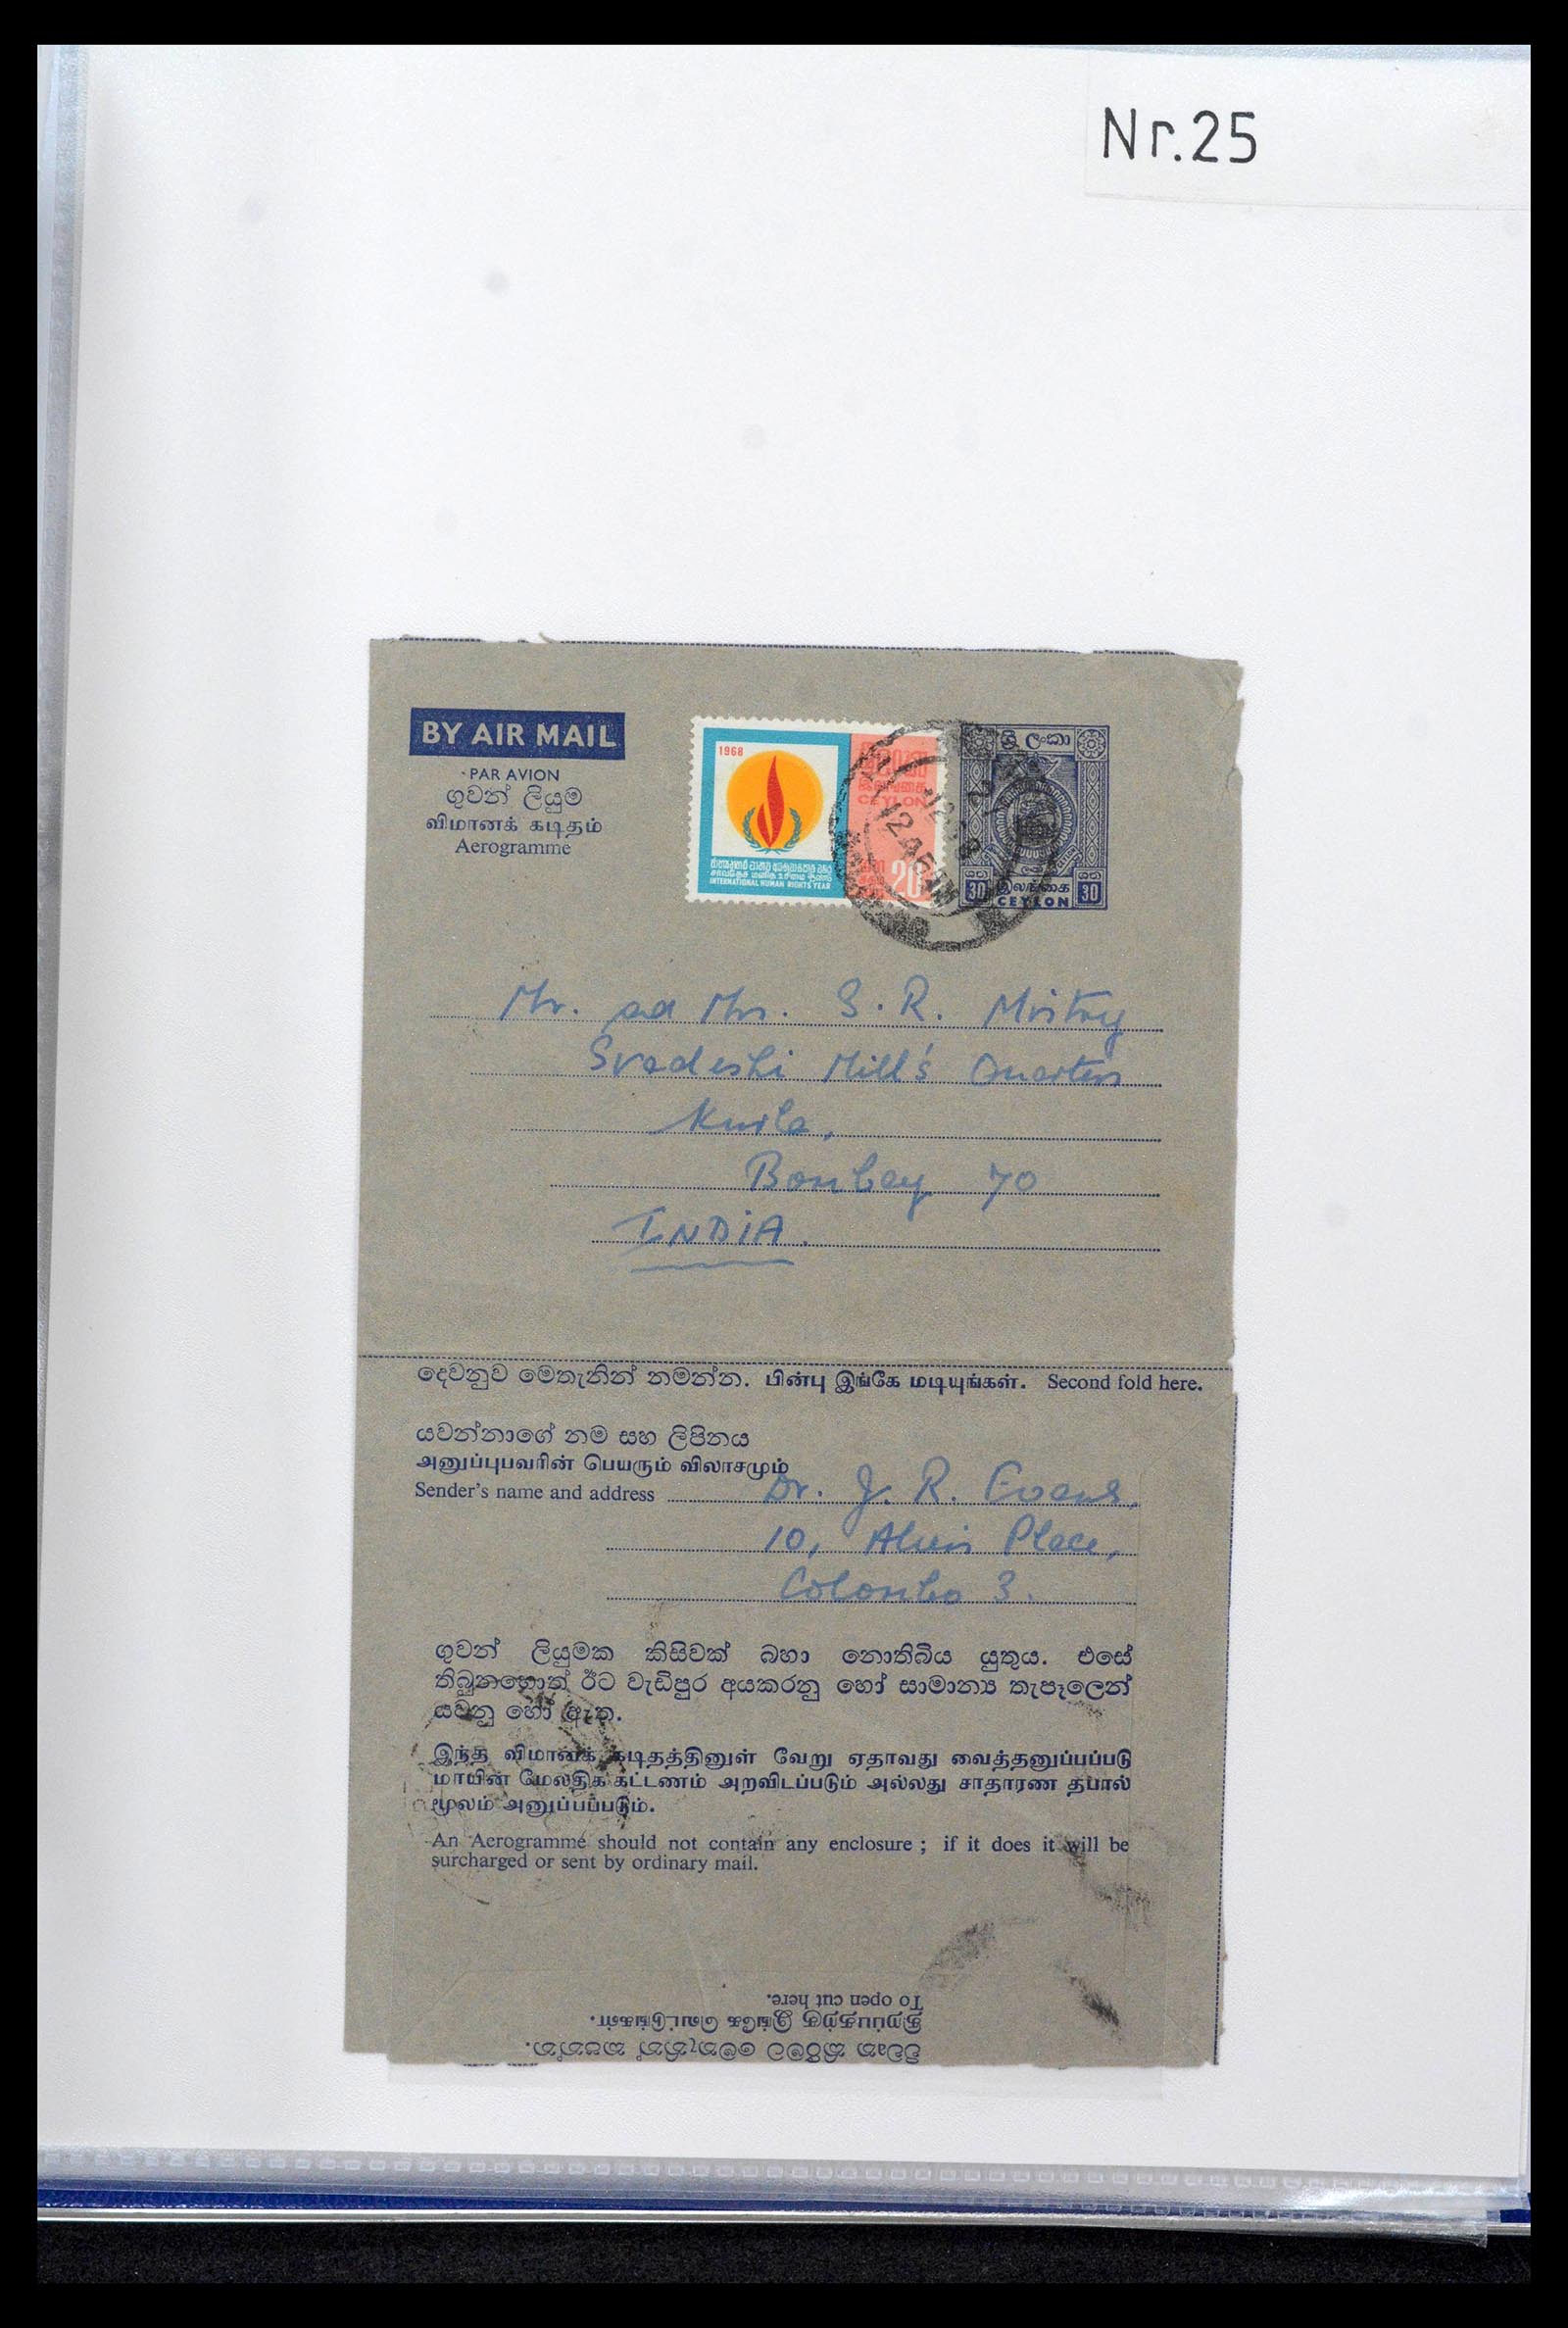 Nr.25
BY AIR MAIL
PAR AVION
ගුවන් ලියුම
விமானக் கடிதம்
Aerogramme
1968
CEYLON
20
INTERNATIONAL HUMAN RIGHTS YEAR
ශ්‍රී ලංකා
30 இலங்கை 30
CEYLON
Mr. ad Mrs. S. R. Mistry
Svadeshi Mill's Quarters
Kurla,
Bombay 70
INDIA.
දෙවනුව මෙතැනින් නමන්න. பின்பு இங்கே மடியுங்கள். Second fold here.
යවන්නාගේ නම සහ ලිපිනය
அனுப்புபவரின் பெயரும் விலாசமும்
Sender's name and address Dr. J. R. Evans,
10, Alwis Place,
Colombo 3.
ගුවන් ලියුමක කිසිවක් බහා නොතිබිය යුතුය. එසේ
තිබුනහොත් ඊට වැඩිපුර අයකරනු හෝ සාමාන්‍ය තැපෑලෙන්
යවනු හෝ ඇත.
இந்த விமானக் கடிதத்தினுள் வேறு ஏதாவது வைத்தனுப்பப்படு
மாயின் மேலதிக கட்டணம் அறவிடப்படும் அல்லது சாதாரண தபால்
மூலம் அனுப்பப்படும்.
An Aerogramme should not contain any enclosure ; if it does it will be
surcharged or sent by ordinary mail.
විවෘත කිරීමට මෙතැනින් කපන්න.
திறப்பதற்கு இங்கே வெட்டுங்கள்.
To open cut here.